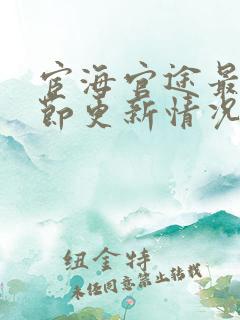 宦海官途最
节更新情况
纽金特
未经同意禁止转载